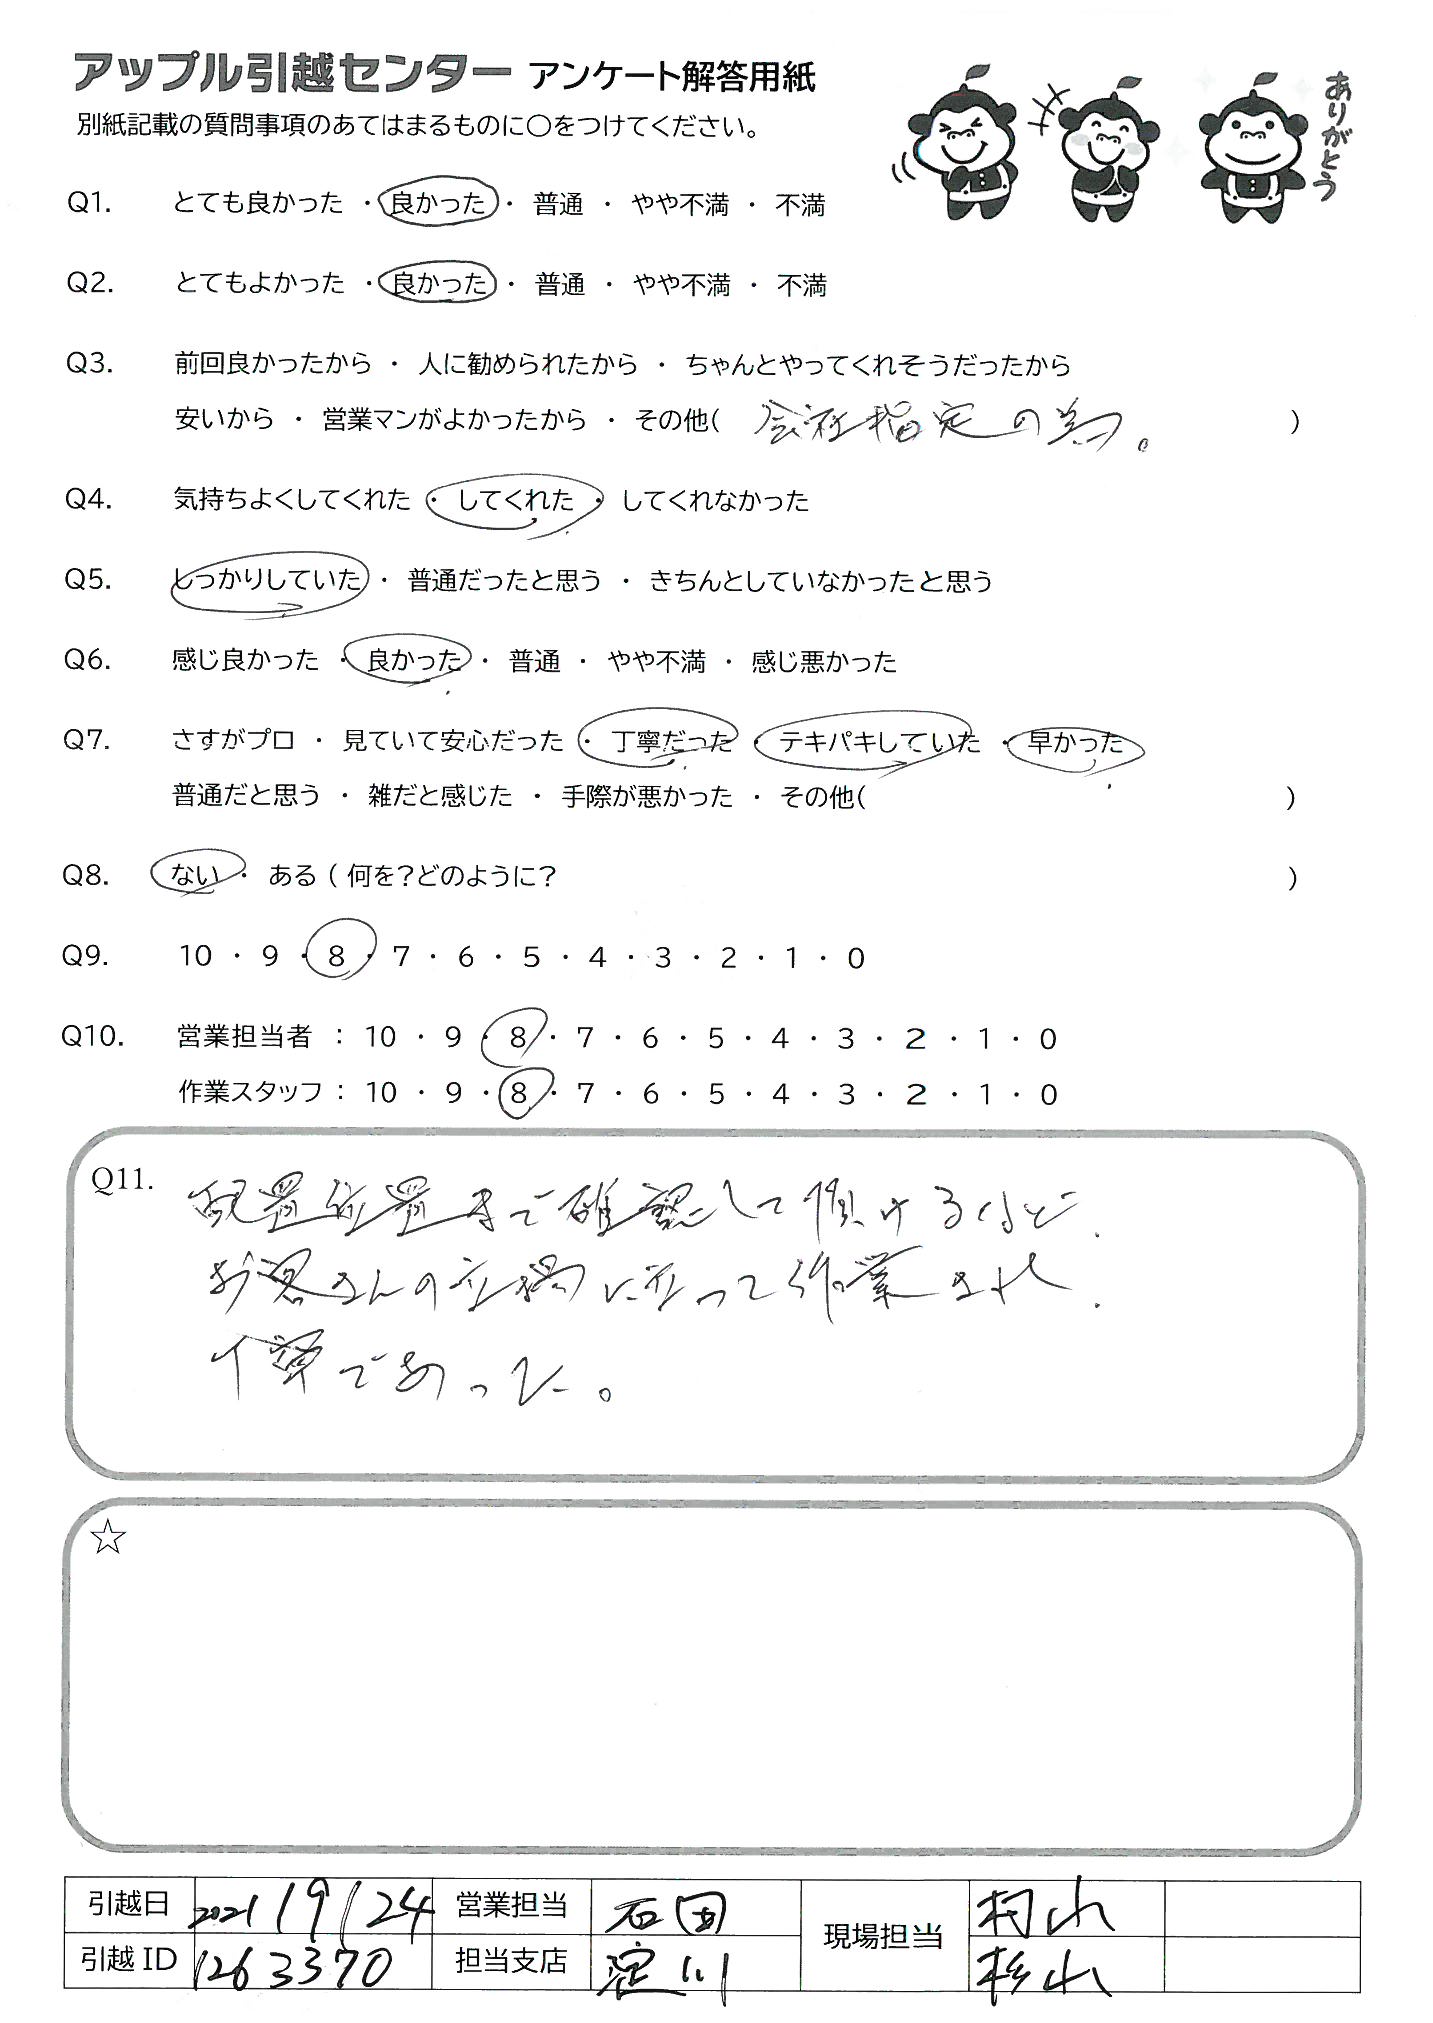 アップル引越センター アンケート解答用紙
別紙記載の質問事項のあてはまるものに○をつけてください。
ありがとう
Q1. とても良かった ・ 良かった ・ 普通 ・ やや不満 ・ 不満
Q2. とてもよかった ・ 良かった ・ 普通 ・ やや不満 ・ 不満
Q3. 前回良かったから ・ 人に勧められたから ・ ちゃんとやってくれそうだったから
安いから ・ 営業マンがよかったから ・ その他( 会社指定の為。 )
Q4. 気持ちよくしてくれた ・ してくれた ・ してくれなかった
Q5. しっかりしていた ・ 普通だったと思う ・ きちんとしていなかったと思う
Q6. 感じ良かった ・ 良かった ・ 普通 ・ やや不満 ・ 感じ悪かった
Q7. さすがプロ ・ 見ていて安心だった ・ 丁寧だった ・ テキパキしていた ・ 早かった
普通だと思う ・ 雑だと感じた ・ 手際が悪かった ・ その他( )
Q8. ない ・ ある ( 何を?どのように? )
Q9. 10 ・ 9 ・ 8 ・ 7 ・ 6 ・ 5 ・ 4 ・ 3 ・ 2 ・ 1 ・ 0
Q10. 営業担当者 : 10 ・ 9 ・ 8 ・ 7 ・ 6 ・ 5 ・ 4 ・ 3 ・ 2 ・ 1 ・ 0
作業スタッフ : 10 ・ 9 ・ 8 ・ 7 ・ 6 ・ 5 ・ 4 ・ 3 ・ 2 ・ 1 ・ 0
Q11. 配置位置まで確認して頂けるなど、
お客さんの立場に立って作業され、
であった。
☆
引越日 2021/9/24 営業担当 石田 現場担当 村山
引越ID 1263370 担当支店 淀川 杉山